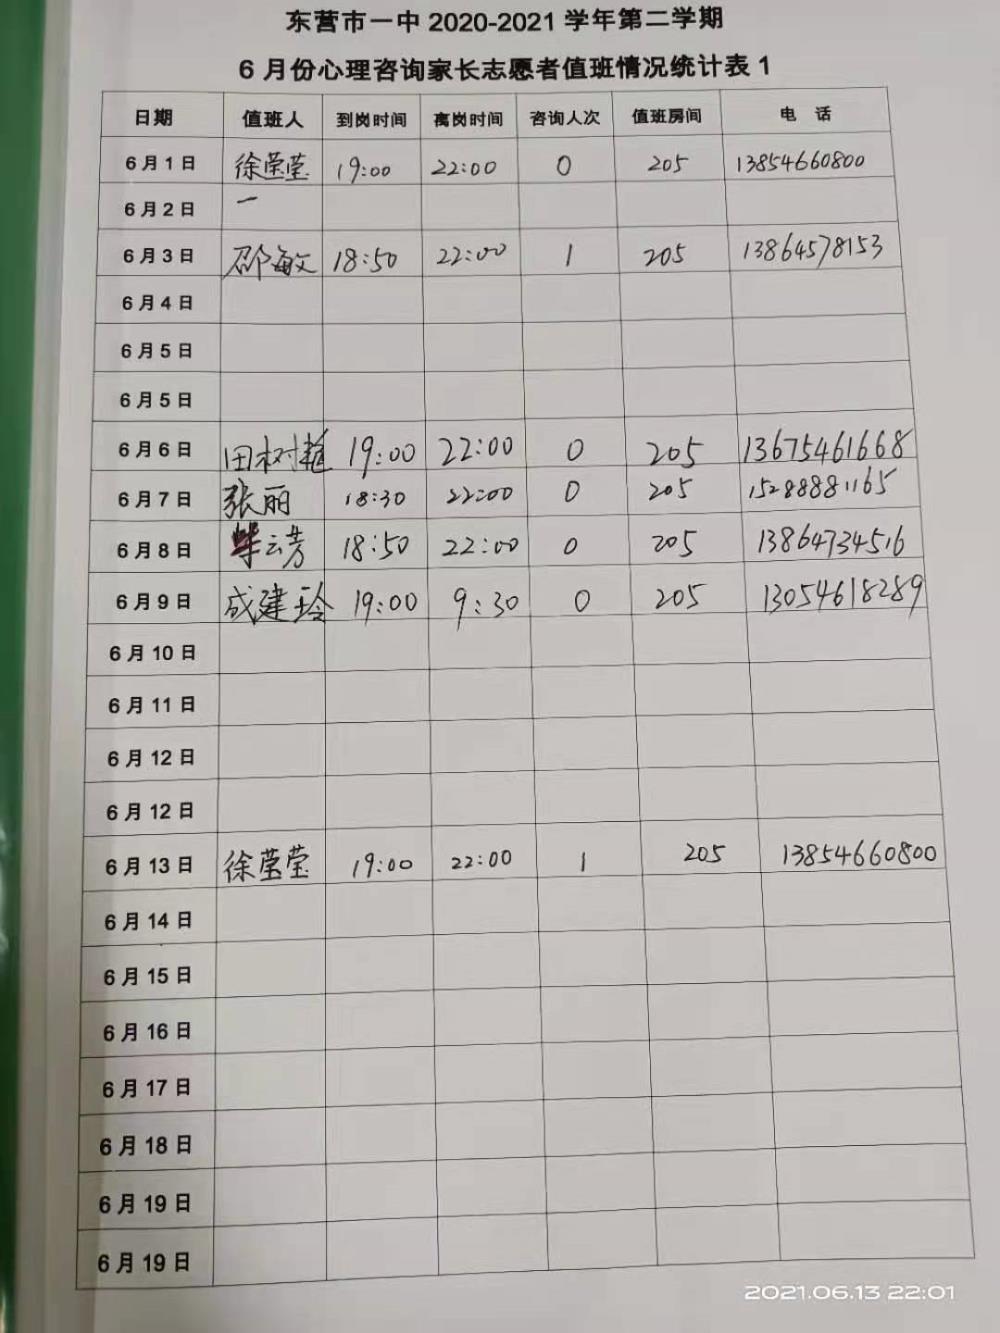 东营市一中 2020-2021 学年第二学期
6 月份心理咨询家长志愿者值班情况统计表 1
日期 值班人 到岗时间 离岗时间 咨询人次 值班房间 电 话
6 月 1 日 徐莹莹 19:00 22:00 0 205 13854660800
6 月 2 日 一
6 月 3 日 邵敏 18:50 22:00 1 205 13864578153
6 月 4 日
6 月 5 日
6 月 5 日
6 月 6 日 田树 19:00 22:00 0 205 13675461668
6 月 7 日 张丽 18:30 22:00 0 205 15288881165
6 月 8 日 云芳 18:50 22:00 0 205 13864734516
6 月 9 日 成建玲 19:00 9:30 0 205 13054618289
6 月 10 日
6 月 11 日
6 月 12 日
6 月 12 日
6 月 13 日 徐莹莹 19:00 22:00 1 205 13854660800
6 月 14 日
6 月 15 日
6 月 16 日
6 月 17 日
6 月 18 日
6 月 19 日
6 月 19 日
2021.06.13 22:01